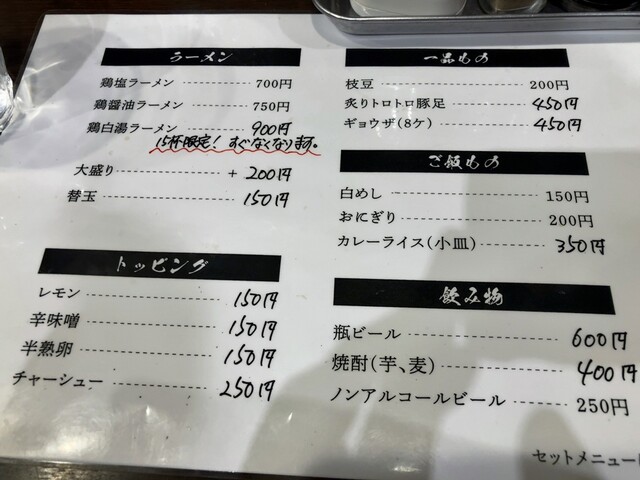 ラーメン
鶏塩ラーメン 700円
鶏醤油ラーメン 750円
鶏白湯ラーメン 900円
15杯限定！すぐなくなります。
大盛り + 200円
替玉 150円
トッピング
レモン 150円
辛味噌 150円
半熟卵 150円
チャーシュー 250円
一品もの
枝豆 200円
炙りトロトロ豚足 450円
ギョウザ(8ケ) 450円
ご飯もの
白めし 150円
おにぎり 200円
カレーライス(小皿) 350円
飲み物
瓶ビール 600円
焼酎(芋、麦) 400円
ノンアルコールビール 250円
セットメニュー